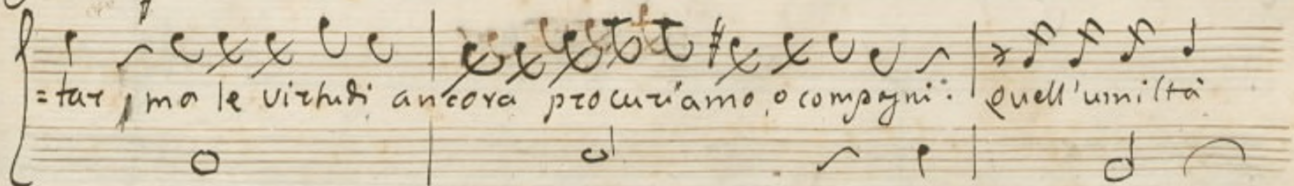 =tar, ma le virtudi ancora procuriamo, o compagni: quell'umiltà